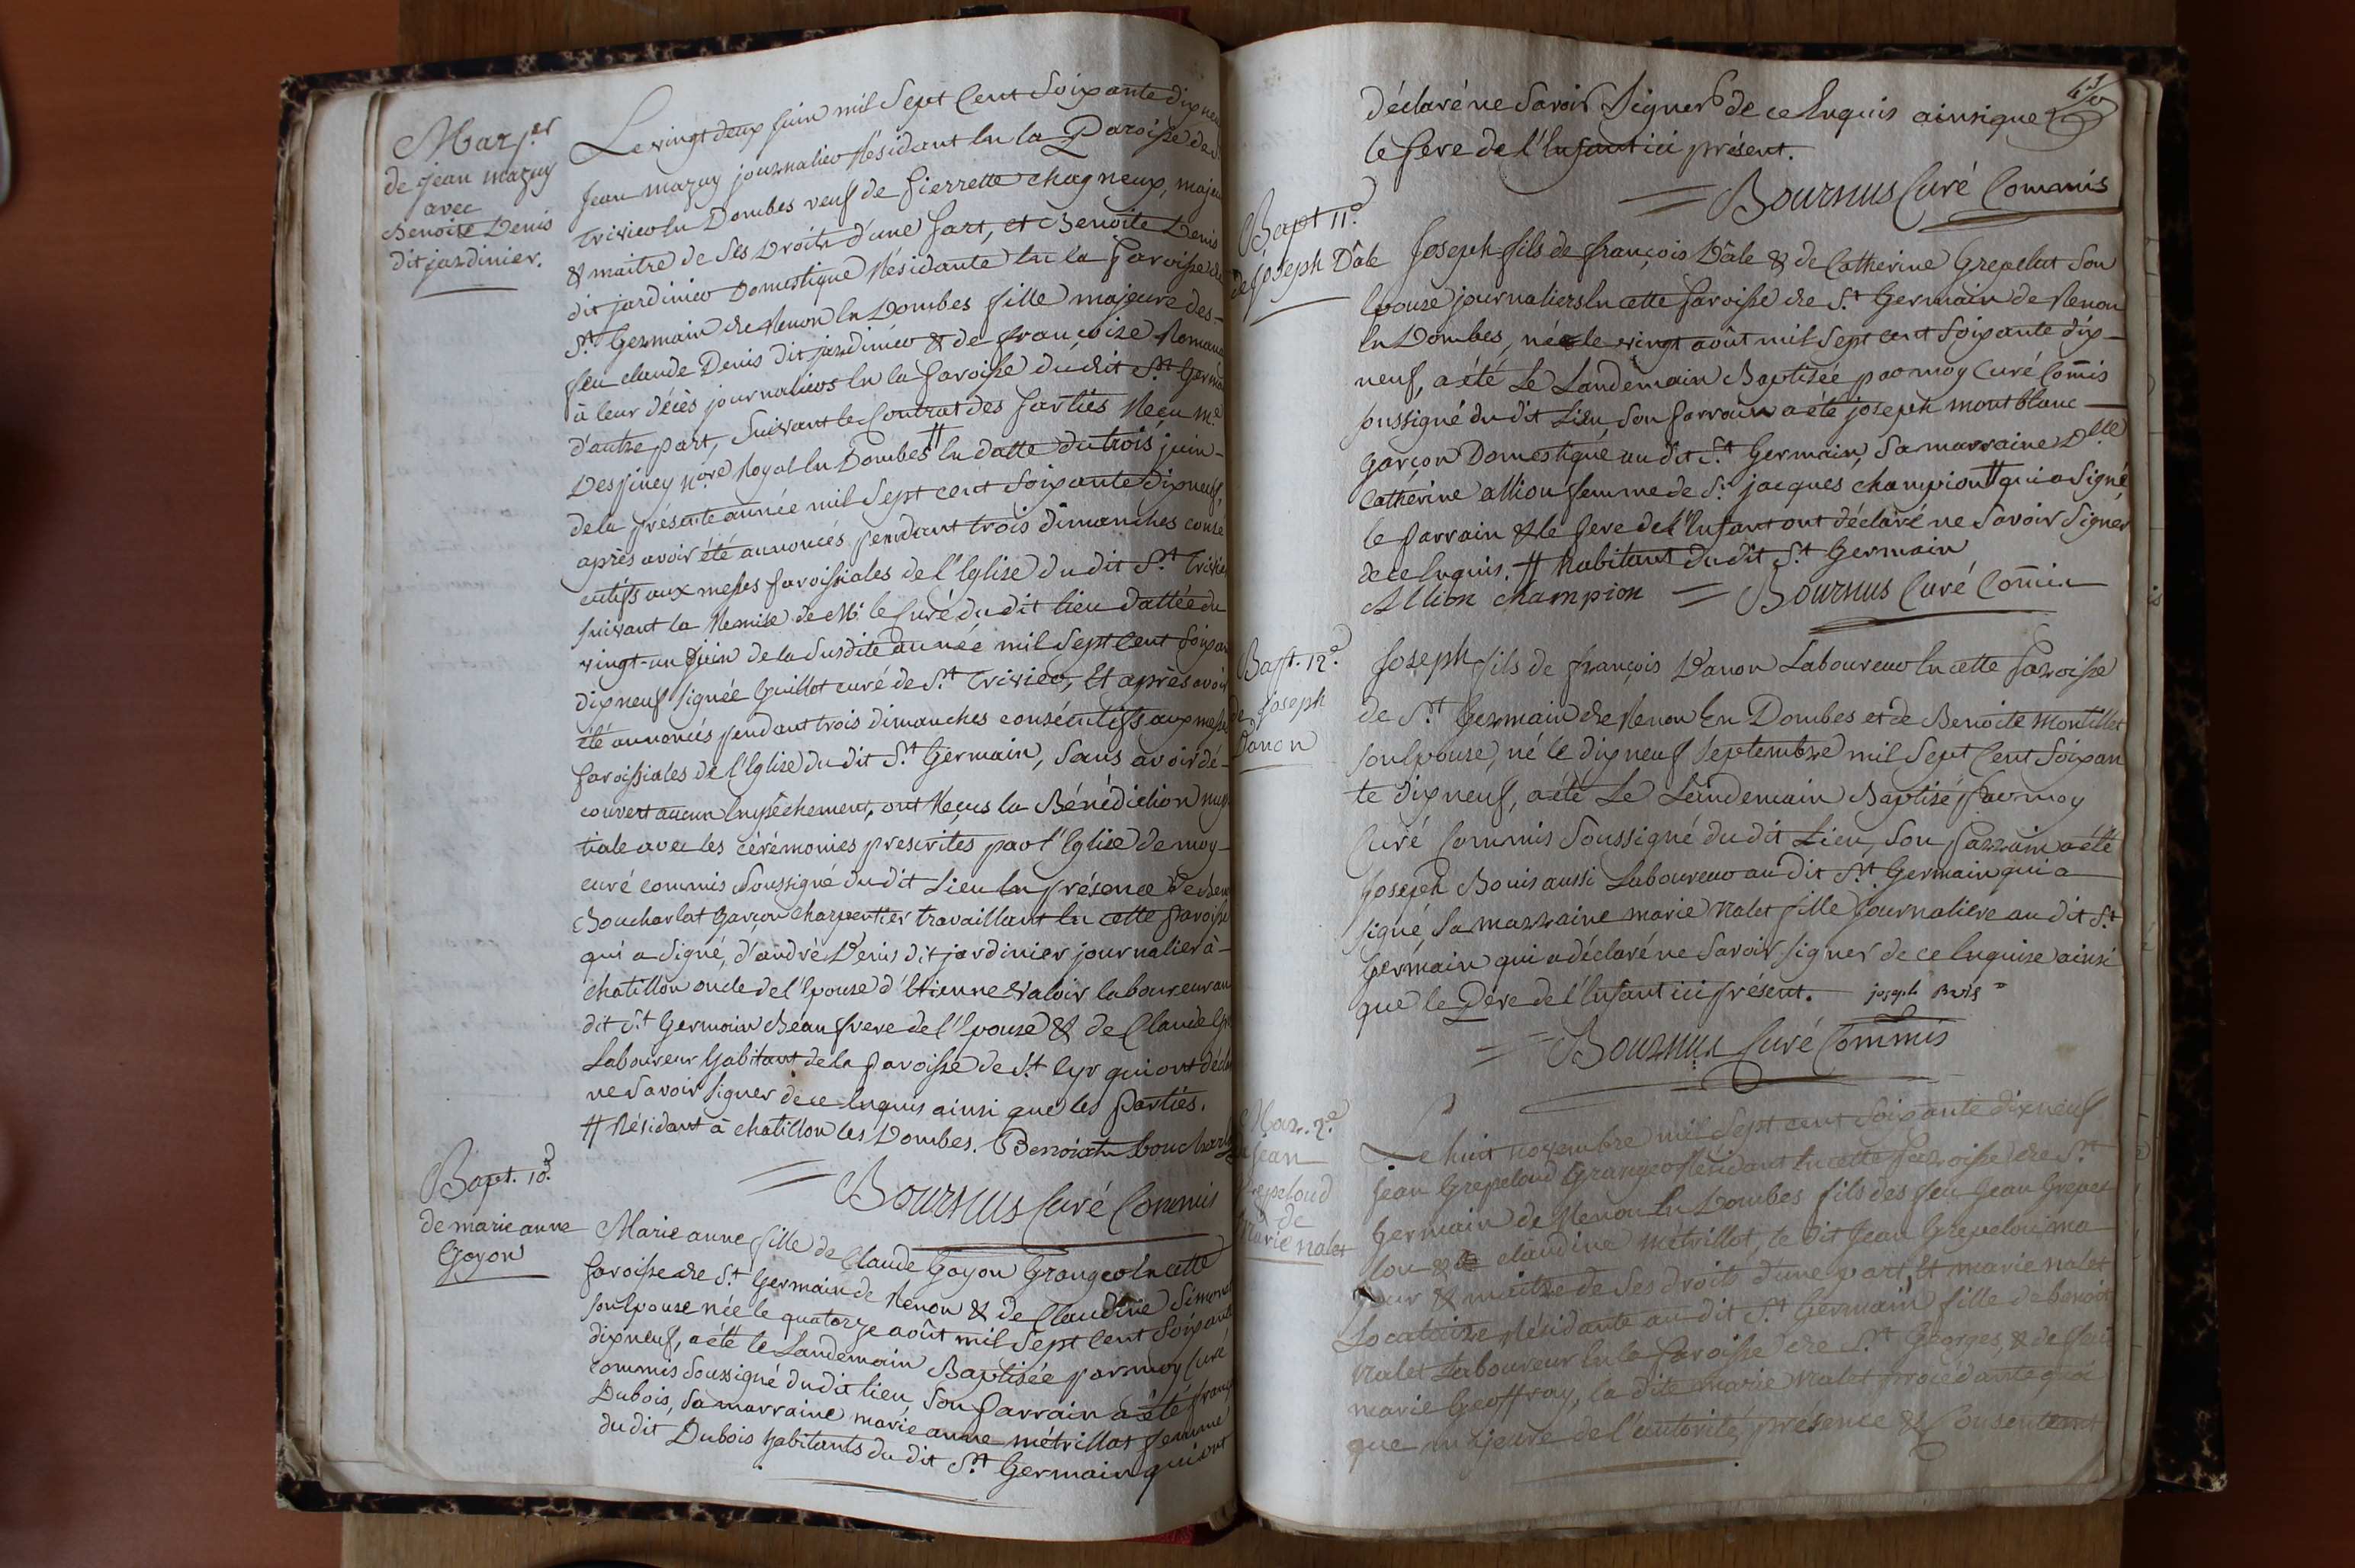 Mar. 1er
de jean mazuy
avec
Benoite Denis
dit jardinier.
Le vingt deux juin mil Sept Cent Soixante dix neu
Jean mazuy journalier Résidant En la Paroisse de
Trivier En Dombes veuf de pierrette chagneux, majeu
& maitre de Ses Droits d'une part, et Benoite Denis
dit jardinier Domestique Résidante En la paroisse de
St Germain de Renon En Dombes fille majeure des
feu claude Denis dit jardinier & de françoise Romane
à leur décès journaliers En la paroisse du dit St Germa
d'autre part, Suivant le Contrat des parties Reçu Me
Despiney nore Royal En Dombes # En datte du trois juin
de la présente année mil Sept cent Soixante dix neuf,
après avoir été annoncés pendant trois dimanches consé
cutifs aux messes paroissiales de l'Eglise du dit St Trivier
suivant la Remise de Mr le Curé du dit lieu dattée du
vingt-un juin de la Susdite année mil Sept Cent Soixan
dix neuf signée Guillot curé de St Trivier, Et après avoir
été annoncés pendant trois dimanches consécutifs aux messe
paroissiales de l'Eglise du dit St Germain, Sans avoir dé-
couvert aucun Empêchement, ont Reçus la Bénédiction nup
tiale avec les cérémonies prescrites par l'Eglise de moy
curé commis Soussigné du dit Lieu En présence de
Boucharlat Garçon charpentier travaillant En cette paroisse
qui a Signé, d'andré Denis dit jardinier journalier à
chatillon oncle de l'Epouse d'Etienne Valoir laboureur au
dit St Germain Beau frere de l'Epouse & de Claude
Laboureur habitant de la paroisse de St Cyr qui ont décla
ne Savoir signer de ce Enquis ainsi que les parties.
# Résidant à chatillon les Dombes. Benoit boucharla
= Bournus Curé Commis
Bapt. 10e
de marie anne
Goyon
Marie anne fille de Claude Goyon Granger En cette
paroisse de St Germain de Renon & de Claudine Simond
son Epouse née le quatorze août mil Sept Cent Soixante
dix neuf, a été le Landemain Baptisée par moy Curé
commis Soussigné du dit lieu, Son parrain a été franç
Dubois, Sa marraine marie anne métrillat femme
du dit Dubois habitants du dit St Germain qui ont
déclaré ne Savoir Signer de ce Enquis ainsi que
le pere de l'Enfant ici présent.
= Bournus Curé Commis
Bapt 11e
de joseph Dâle
Joseph fils de françois Dâle & de Catherine Grepelut Son
Epouse journaliers En cette paroisse de St Germain de Renon
En Dombes, né le vingt août mil Sept cent Soixante dix-
neuf, a été Le Landemain Baptisée par moy Curé Commis
soussigné du dit Lieu, Son parrain a été joseph montblanc
garçon Domestique au dit St Germain, Sa marraine Dlle
Catherine allion femme de Sr jacques champion # qui a Signé,
le parrain & le pere de l'Enfant ont déclaré ne Savoir Signer
de ce Enquis. # habitant du dit St Germain
Allion champion = Bournus Curé Commis
Bapt. 12e
de joseph
Danon
Joseph fils de françois Danon Laboureur En cette paroisse
de St Germain de Renon En Dombes et de Benoite Montillet
son Epouse, né le dix neuf Septembre mil Sept Cent Soixan
te dix neuf, a été Le Landemain Baptisé par moy
Curé Commis Soussigné du dit Lieu, Son parrain a été
joseph Bouis aussi Laboureur au dit St Germain qui a
signé, Sa marraine marie Nalet fille journaliere au dit St
Germain qui a déclaré ne Savoir signer de ce Enquise ainsi
que le Pere de l'Enfant ici présent. joseph
= Bournus Curé Commis
Mar. 2e
de Jean
Grepeloud
& de
Marie Nalet
Le huit novembre mil Sept cent Soixante dix neuf
Jean Grepeloud Granger Résidant En cette paroisse de St
Germain de Renon En Dombes fils des feu Jean Grepe
lou & claudine métrillot, le dit Jean Grepelou ma
jeur & maitre de Ses droits d'une part, Et marie Nalet
Locataire Résidante au dit St Germain fille de benoit
Nalet Laboureur En la paroisse de St Georges, & de feu
marie Geoffray, la dite marie Nalet procédante quoi
que majeure de l'autorité, présence & Consentement